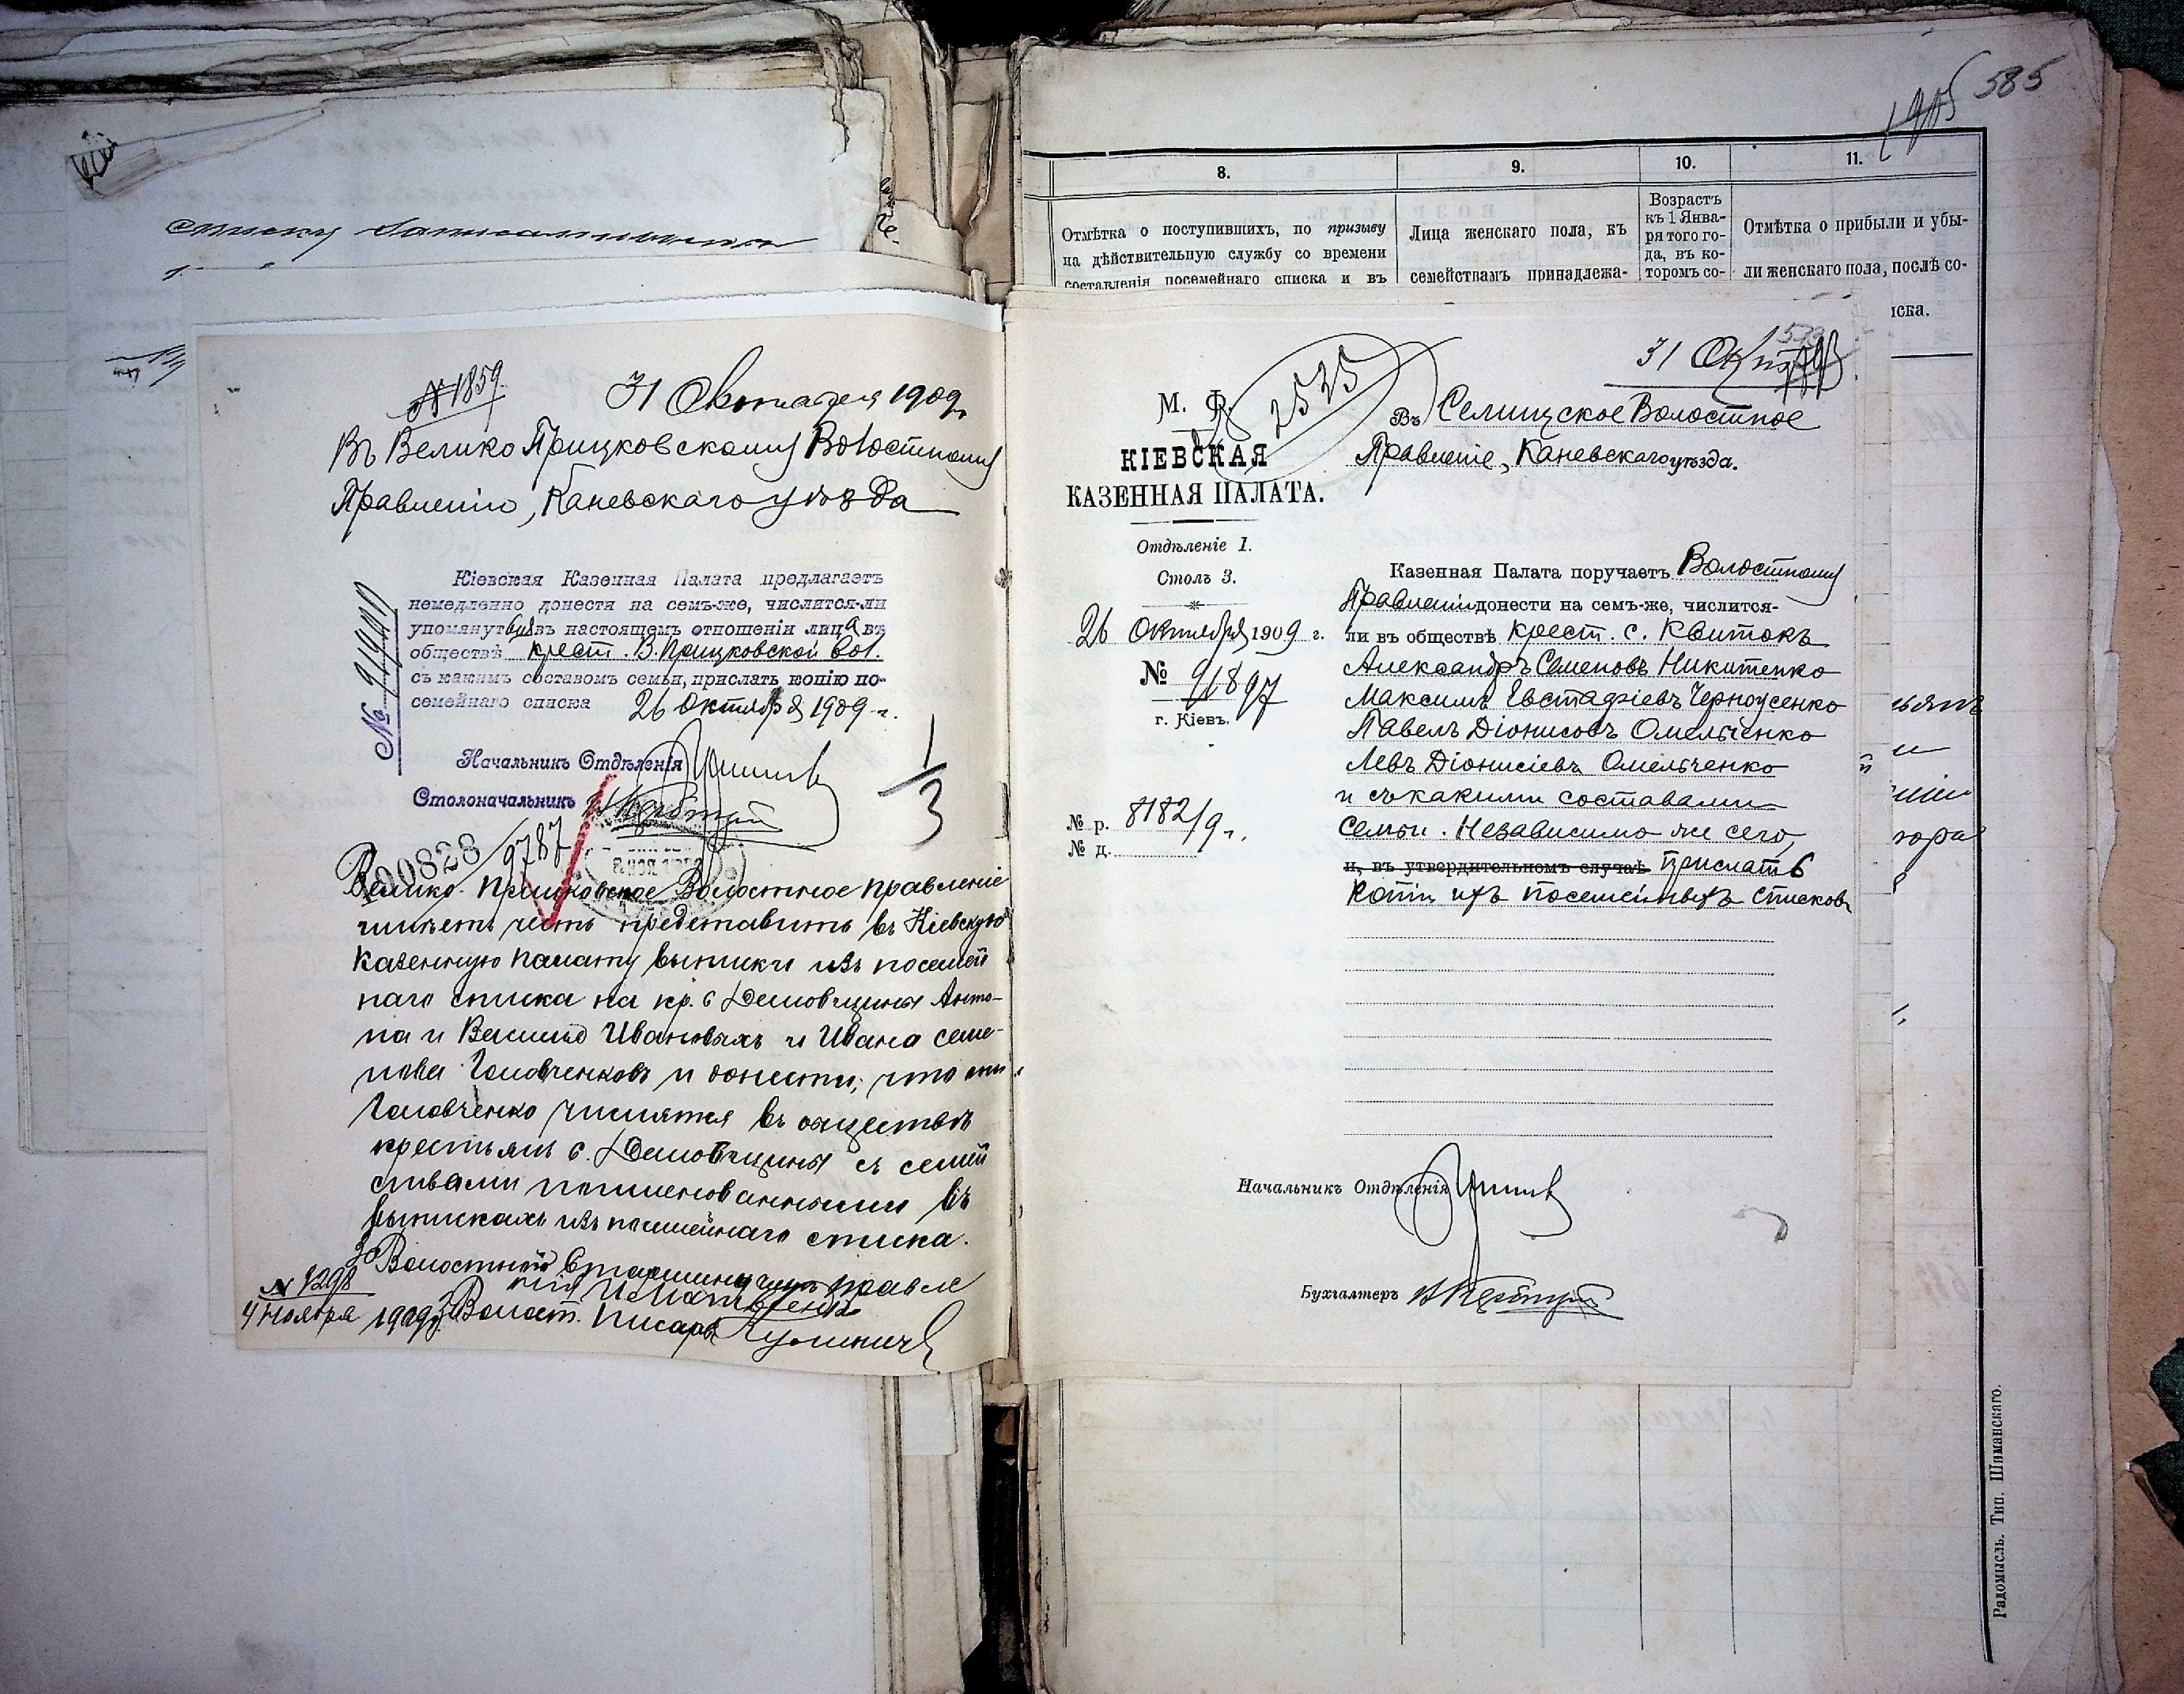 списку
№ 1859
31 Октября 1909 г.
Въ Велико Прицковскому Волостному
Правленію, Каневскаго уѣзда
Кіевская Казенная Палата предлагаетъ
немедленно донести на семъ-же, числится-ли
упомянутыя въ настоящемъ отношеніи лица въ
обществѣ крест. В. Прицковской вол.
съ какимъ составомъ семьи, прислать копію по-
семейнаго списка 26 октября 1909 г.
№ 91900
Начальникъ Отдѣленія
Столоначальникъ
1/3
100828 / 9787
Велико-Прицковское Волостное правленіе
имѣетъ честь представить въ Кіевскую
Казенную Палату выписки изъ посемей
наго списка на кр. с Демовщины Анто-
на и Василія Ивановыхъ и Ивана Семе-
нова Головченковъ и донести, что эти
Головченко числятся въ обществѣ
крестьянъ с. Демовщины съ семей
ствами поименованными въ
выпискахъ изъ посемейнаго списка.
За Волостного Старшину членъ правле
нія
№ 1298
4 Ноября 1909 г. Волост. Писарь
585
8.
9.
10.
11.
Отмѣтка о поступившихъ, по призыву
на дѣйствительную службу со времени
составленія посемейнаго списка и въ
Лица женскаго пола, къ
семействамъ принадлежа-
Возрастъ
къ 1 Янва-
ря того го-
да, въ ко-
торомъ со-
Отмѣтка о прибыли и убы-
ли женскаго пола, послѣ со-
иска.
31 Окт
2535
М. Ф.
КІЕВСКАЯ
КАЗЕННАЯ ПАЛАТА.
Отдѣленіе 1.
Столъ 3.
26 Октября 1909 г.
№ 91897
г. Кіевъ.
№ р. 8182/9 г.
№ д.
Въ Селищское Волостное
Правленіе, Каневскаго уѣзда.
Казенная Палата поручаетъ Волостному
Правленію донести на семъ-же, числится-
ли въ обществѣ крест. с. Квитокъ
Александръ Семеновъ Никитенко
Максимъ Евстафіевъ Черноусенко
Павелъ Діонисовъ Омельченко
Левъ Діонисіевъ Омельченко
и съ какими составами
семьи. Независимо же сего,
и, въ утвердительномъ случаѣ прислать
копіи ихъ посемейныхъ списковъ
Начальникъ Отдѣленія
Бухгалтеръ
Радомысль. Тип. Шиманскаго.